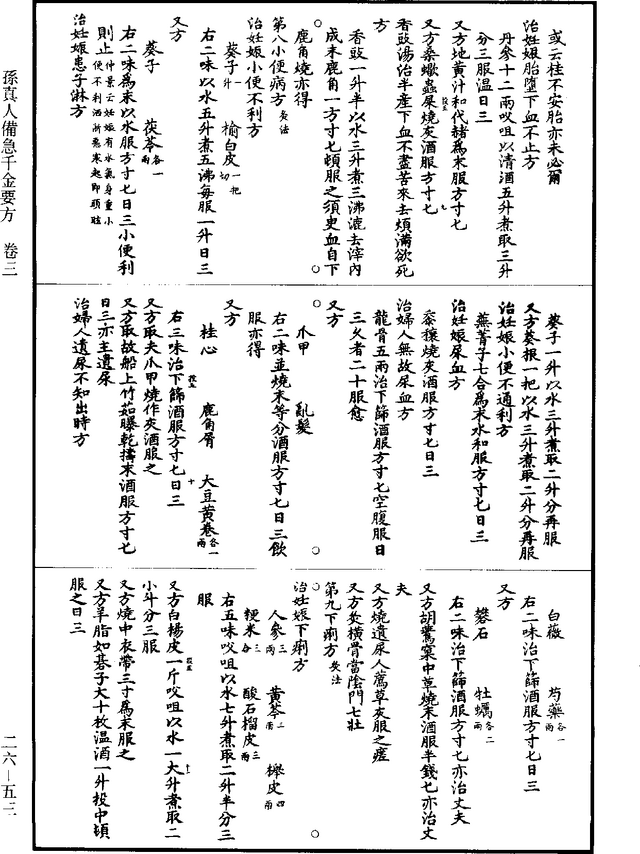 或云桂不安胎亦未必爾
治妊娠胎墮下血不止方
丹參十二兩㕮咀以清酒五升煮取三升
分三服溫日三
又方地黃汁和代赭為末服方寸七
又方桑蠍蟲屎燒灰酒服方寸七
香豉湯治半產下血不盡苦來去煩滿欲死
方
香豉一升半以水三升煮三沸漉去滓內
成末鹿角一方寸七頓服之須臾血自下
鹿角燒亦得
第八小便病方
治妊娠小便不利方
葵子一升 榆白皮一把切
右二味以水五升煮五沸每服一升日三
又方
葵子 茯苓各一兩
右二味為末以水服方寸七日三小便利
則止仲景云妊娠有水氣身重小便不利洒淅惡寒起即頭眩
治妊娠患子淋方
葵子一升以水三升煮取二升分再服
又方葵根一把以水三升煮取二升分再服
治妊娠小便不通利方
蕪菁子七合為末水和服方寸七日三
治妊娠尿血方
黍穰燒灰酒服方寸七日三
治婦人無故尿血方
龍骨五兩治下篩酒服方寸七空腹服日
三久者二十服愈
又方
爪甲 亂髮
右二味並燒末等分酒服方寸七日三飲
服亦得
又方
桂心 鹿角屑 大豆黃卷各一兩
右三味治下篩酒服方寸七日三
又方取夫爪甲燒作灰酒服之
又方取故船上竹茹曝乾擣末酒服方寸七
日三亦主遺尿
治婦人遺尿不知出時方
白薇 芍藥各一兩
右二味治下篩酒服方寸七日三
又方
礬石 牡蠣各二兩
右二味治下篩酒服方寸七亦治丈夫
又方胡鷰窠中草燒末酒服半錢七亦治丈
夫
又方燒遺尿人薦草灰服之瘥
又方炙橫骨當陰門七壯
第九下痢方
治妊娠下痢方
人參三兩 黃芩二兩 櫸皮四兩
粳米三合 酸石榴皮三兩
右五味㕮咀以水七升煮取二升半分三
服
又方白楊皮一斤㕮咀以水一大升煮取二
小斗分三服
又方燒中衣帶三寸為末服之
又方羊脂如碁子大十枚溫酒一升投中頓
服之日三
孫真人備急千金要方 卷三
二六—五三